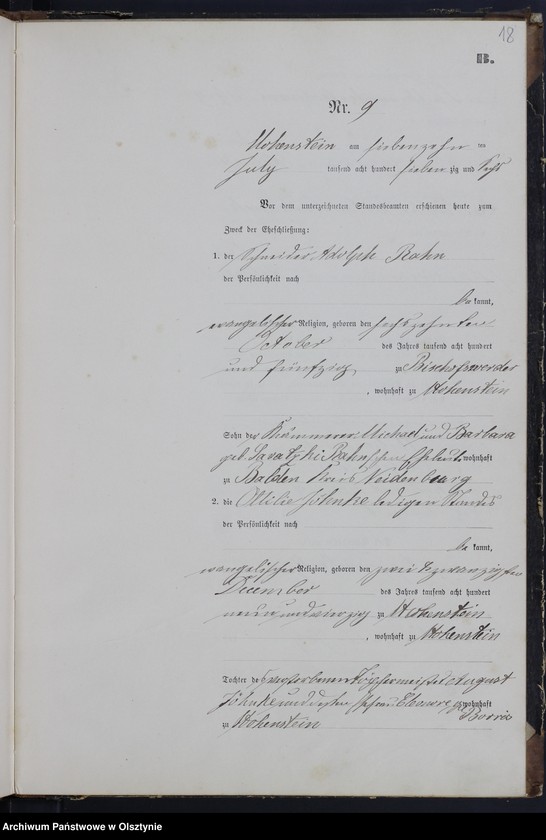 18
B.
Nr. 9
Hohenstein am siebenzehn ten
July tausend acht hundert sieben zig und sechs
Vor dem unterzeichneten Standesbeamten erschienen heute zum
Zweck der Eheschließung:
1. der Schneider Adolph Rahn
der Persönlichkeit nach
be kannt,
evangelischer Religion, geboren den sechszehnten
October des Jahres tausend acht hundert
und fünfzig zu Bischofswerder
, wohnhaft zu Hohenstein
Sohn der Kämmerer Michael und Barbara
geb. Rahnschen Eheleute wohnhaft
zu Balden Kreis Neidenburg
2. die Ottilie Jöhnke ledigen Standes
der Persönlichkeit nach
be kannt,
evangelischer Religion, geboren den zweiundzwanzigsten
December des Jahres tausend acht hundert
neunundvierzig zu Hohenstein
, wohnhaft zu Hohenstein
Tochter des verstorbenen Töpfermeister August
Jöhnke und dessen Ehefrau Eleonore geb wohnhaft
zu Hohenstein
Archiwum Państwowe w Olsztynie